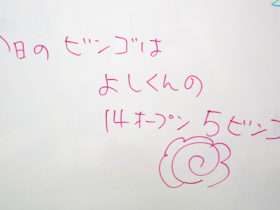 日のビンゴは
よしくんの
14オープン5ビンゴ